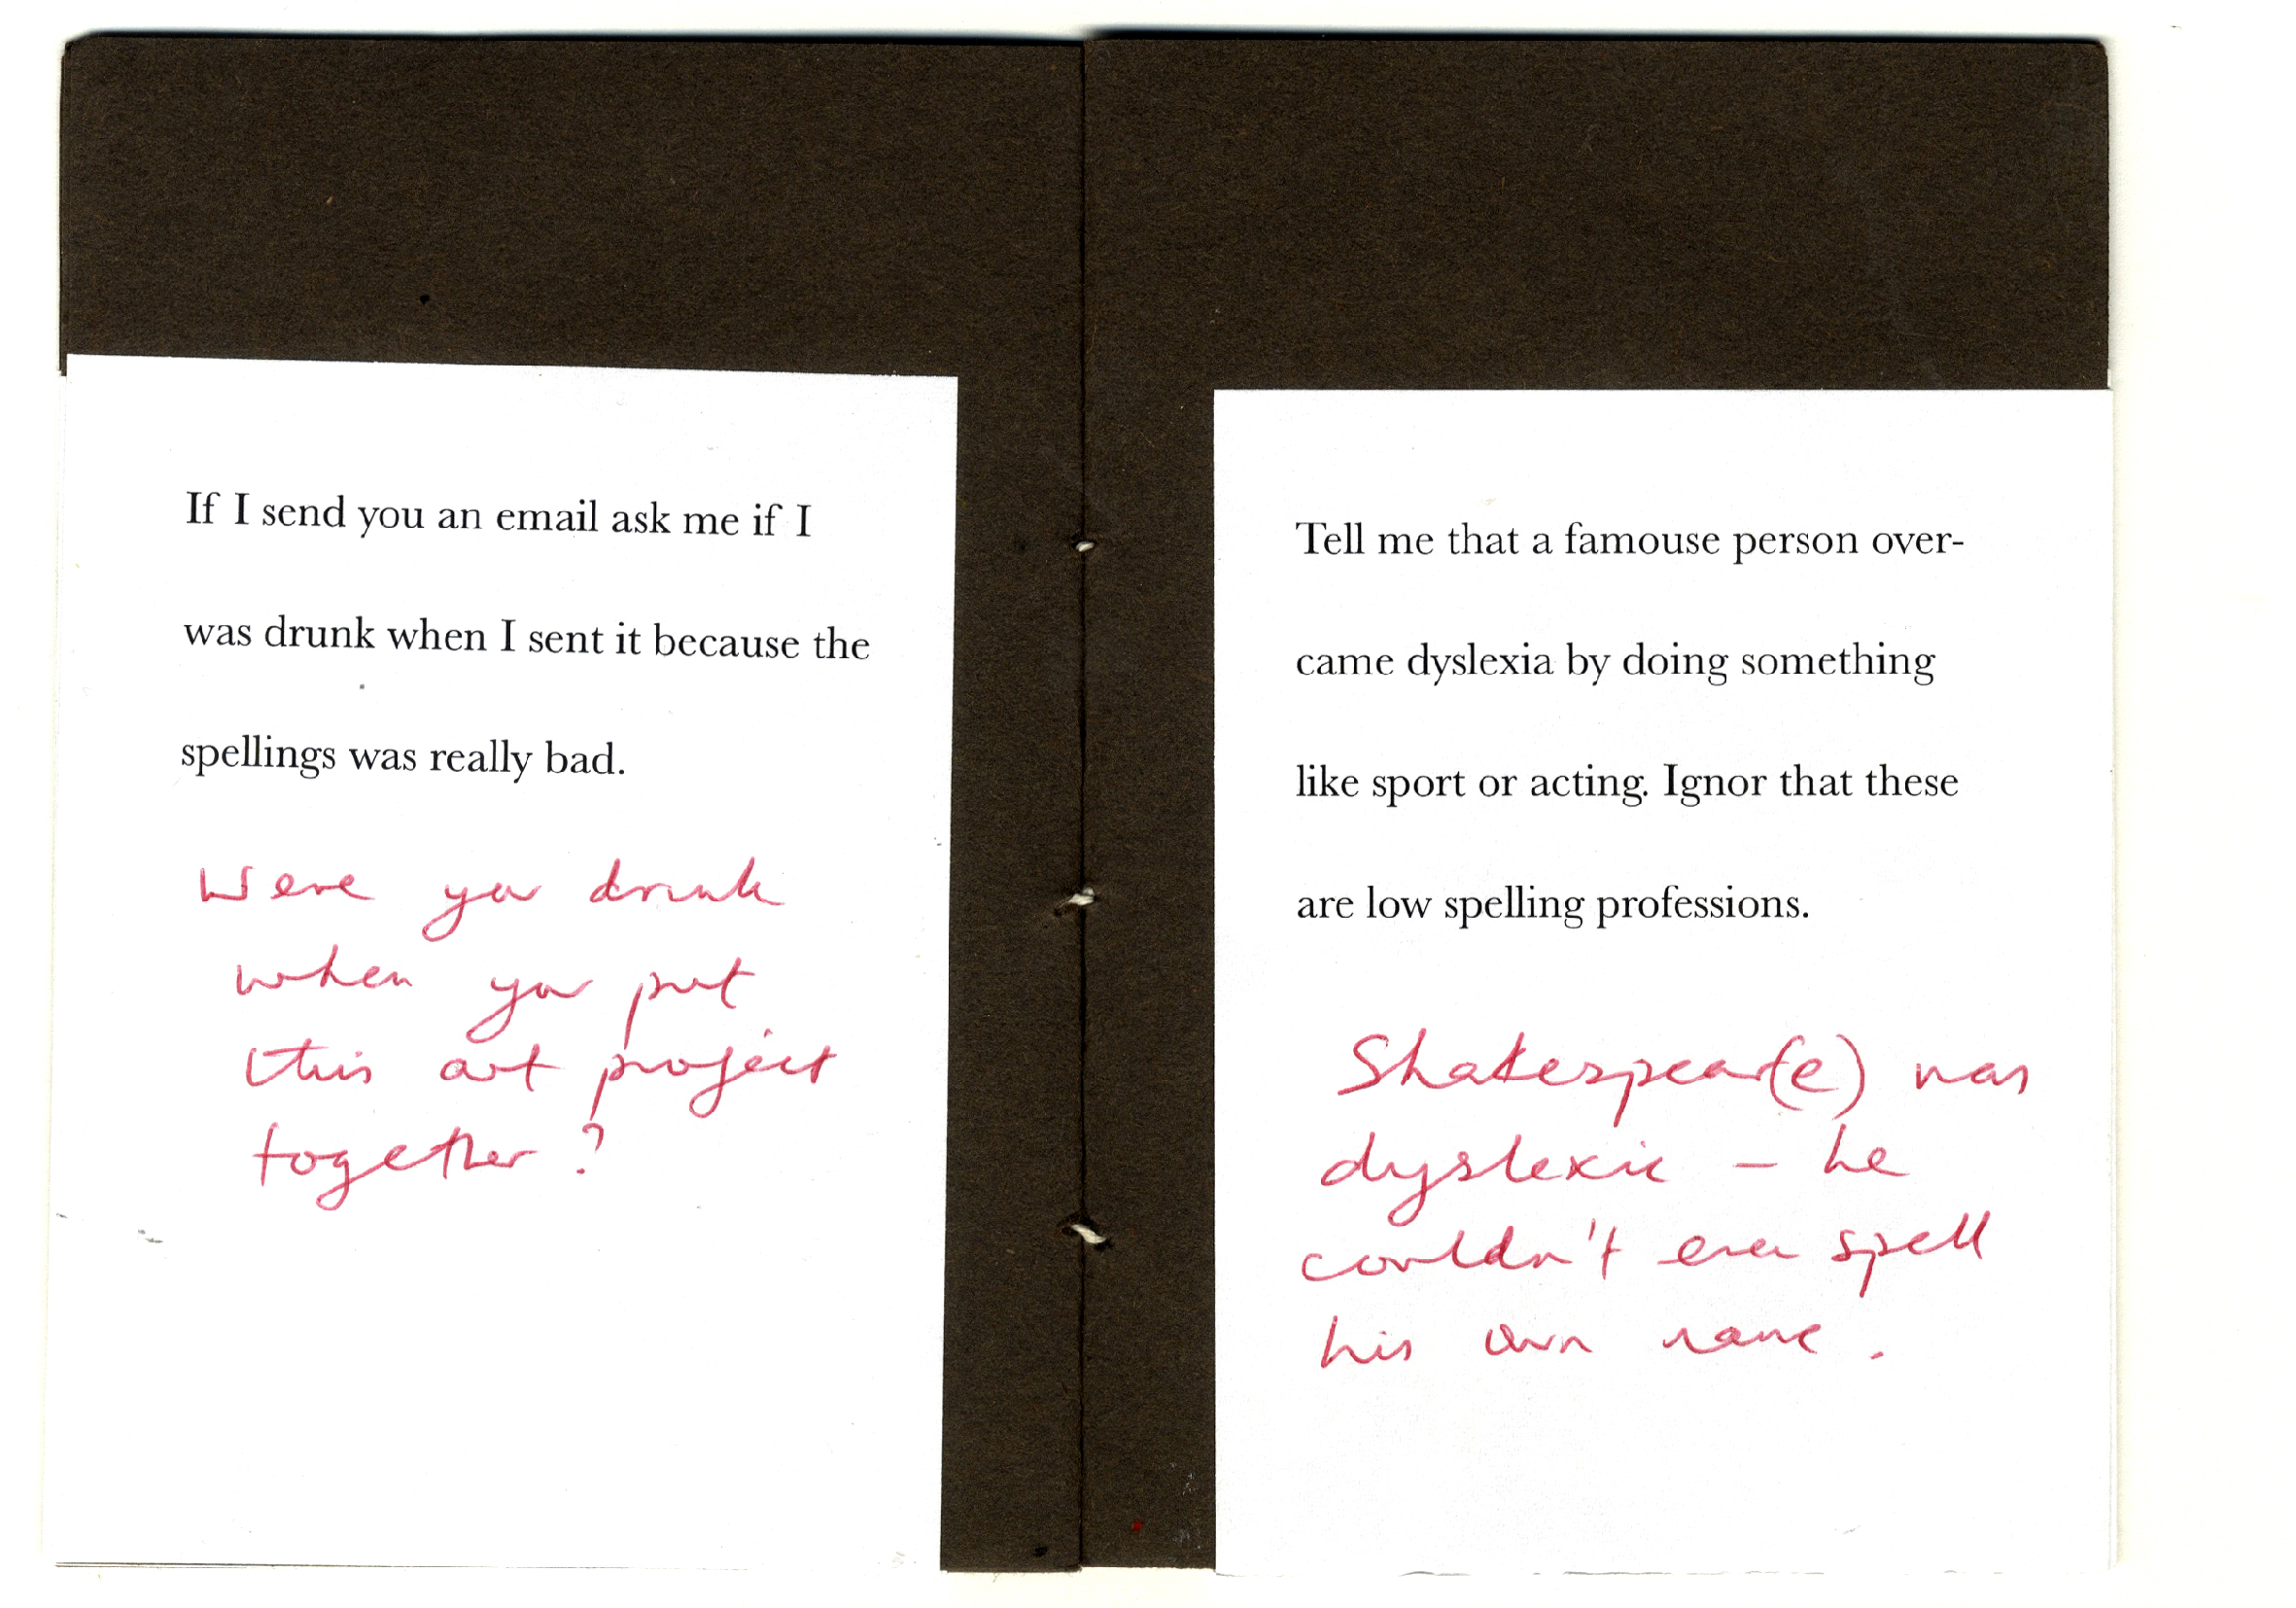 If I send you an email ask me if I
was drunk when I sent it because the
spellings was really bad.
Were you drunk
when you put
this art project
together?
Tell me that a famouse person over-
came dyslexia by doing something
like sport or acting. Ignor that these
are low spelling professions.
Shakespear(e) was
dyslexic – he
couldn't even spell
his own name.